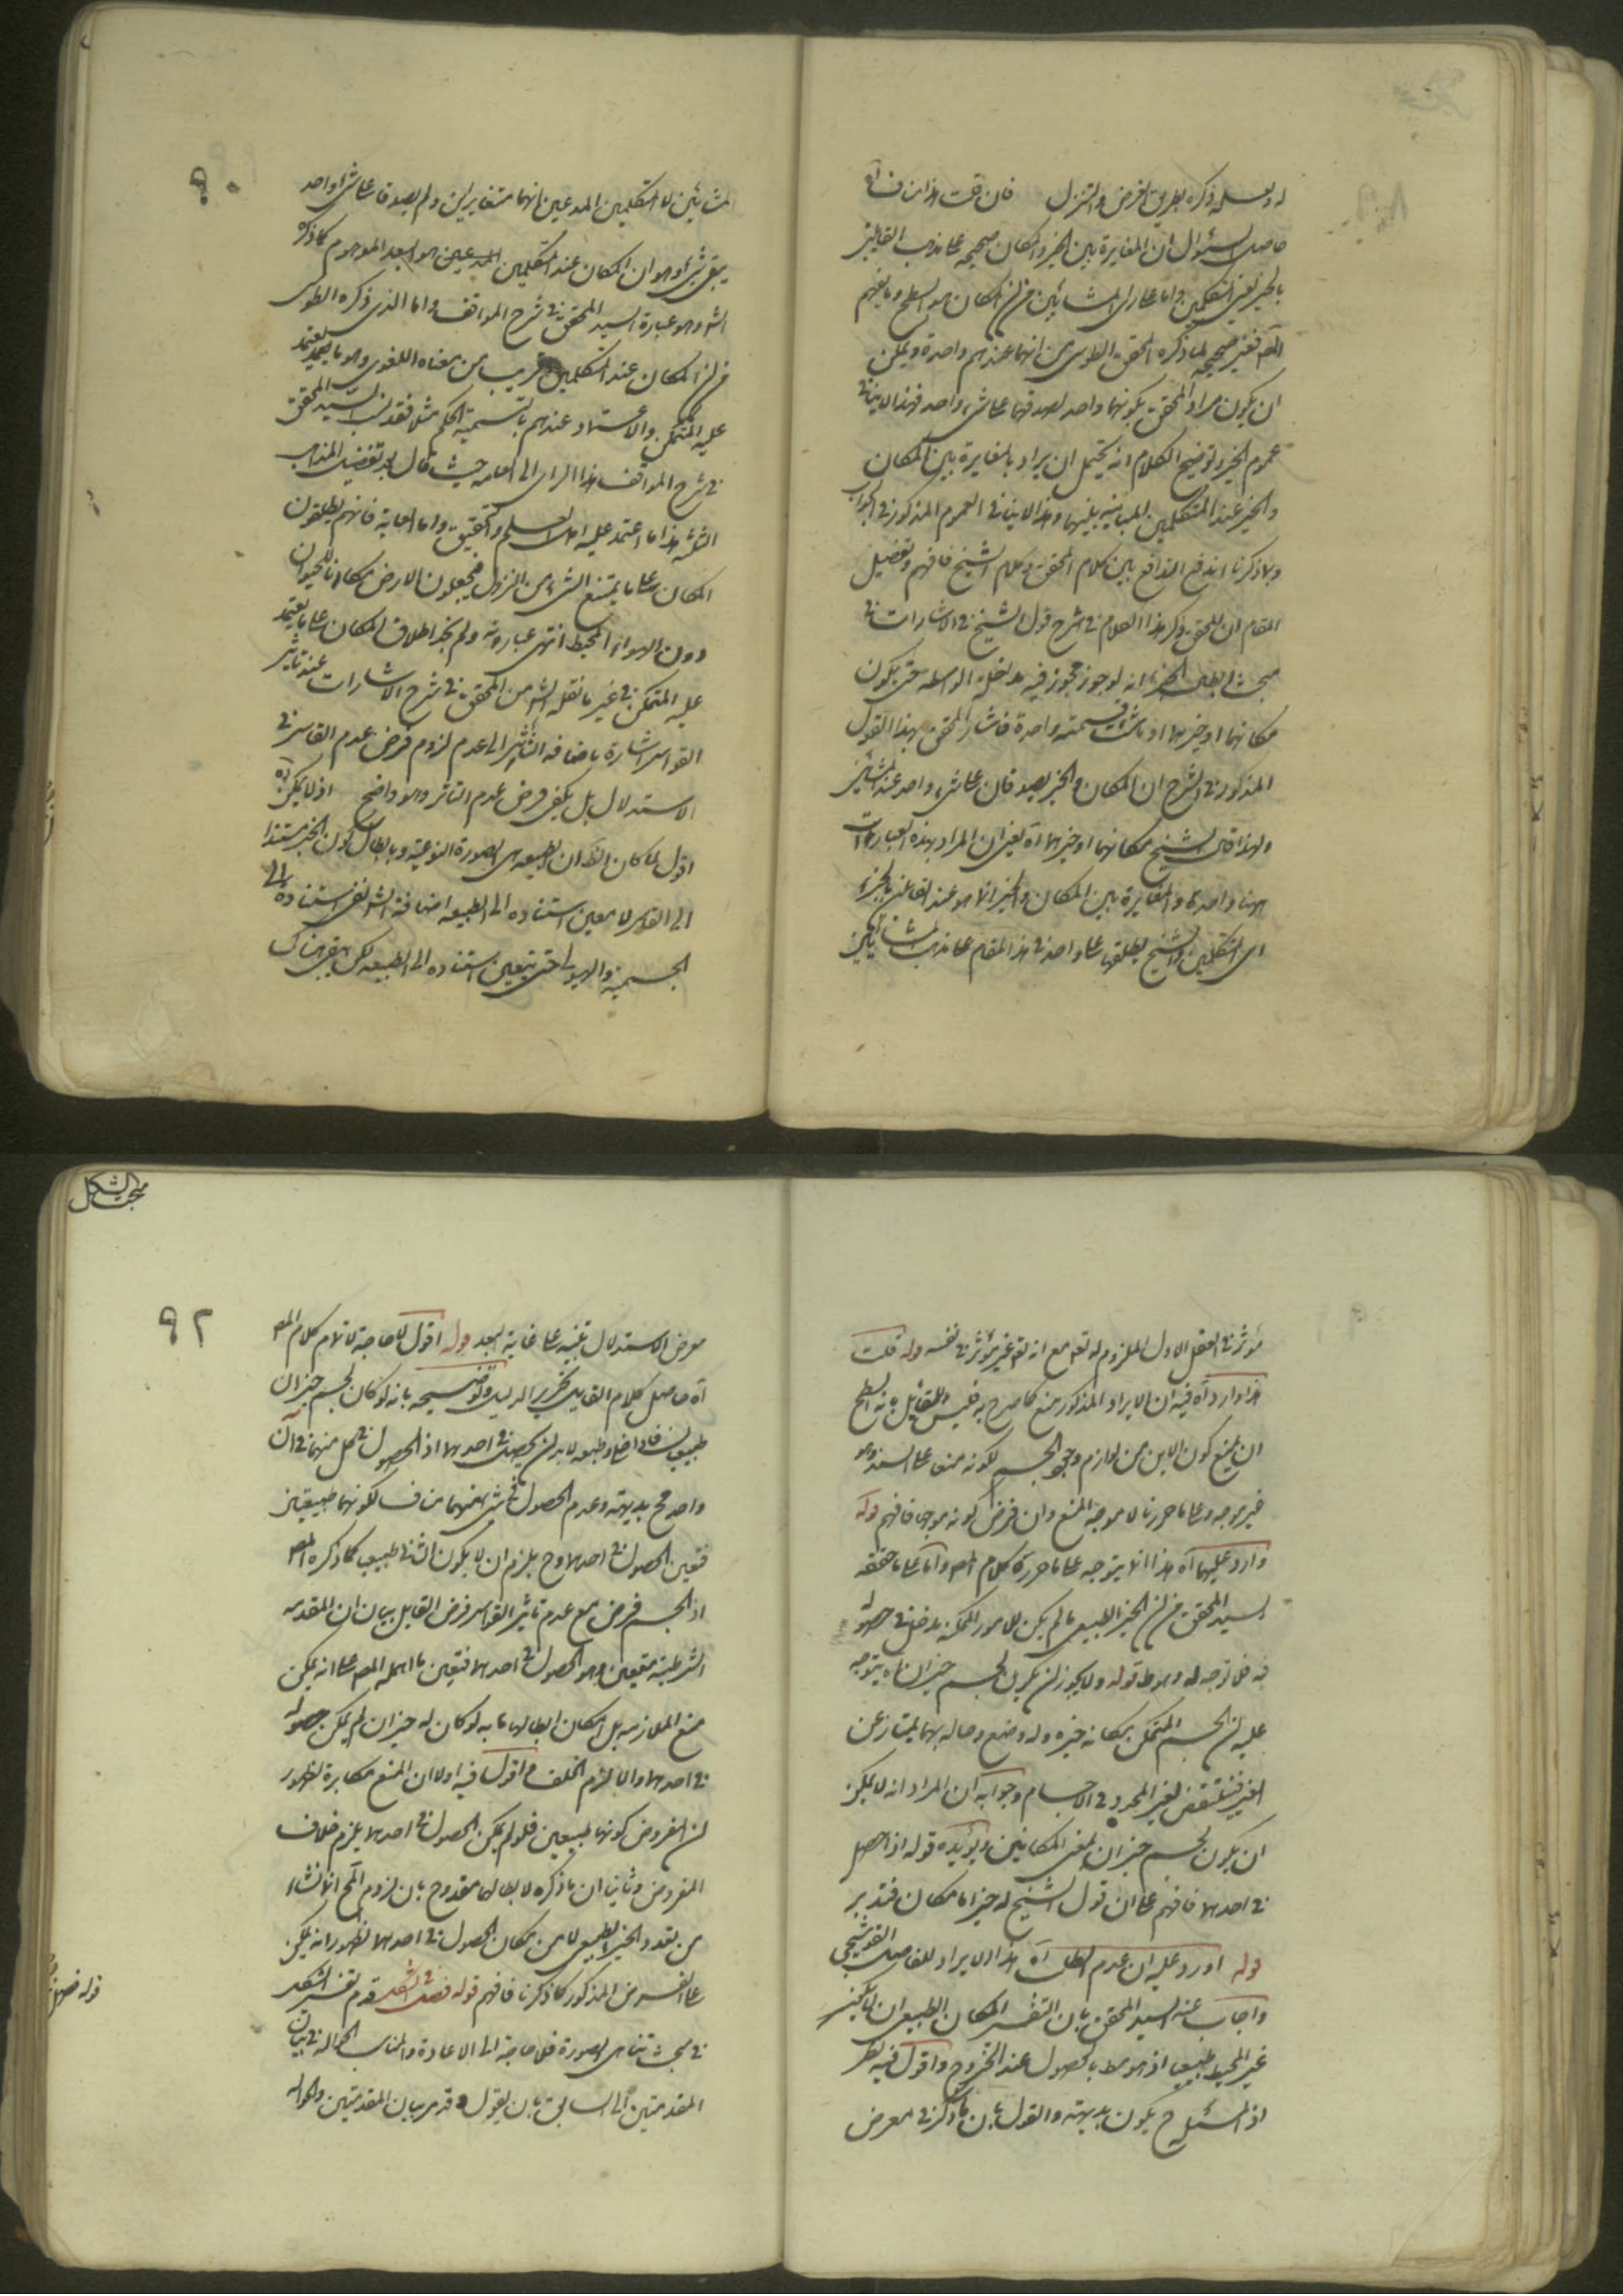 له ولعله ذكره بطريق الفرض والتنزل فان قلت هذا مناف آه
حاصل السؤال ان المغايرة بين الحيز والمكان صحيحة على مذهب القائلين
بالجزء يعني المتكلمين واما على رأي المشائين من ان المكان هو السطح وما يفهم
فغير صحيح لما ذكره المحقق الطوسي من انهما عندهم واحدة ويمكن
ان يكون مراد المحقق بكونهما واحد لصدقهما على شيء واحد فهذا لا ينافي
عموم الحيز وتوضيح الكلام انه يحتمل ان يراد بالمغايرة بين المكان
والحيز عند المتكلمين المباينة بينهما وهذا لا ينافي العموم المذكور في الجواب
وبما ذكرنا اندفع التدافع بين كلام المحقق وكلام الشيخ فافهم وتفصيل
المقام ان المحقق ذكر هذا الكلام في شرح قول الشيخ في الاشارات في
مبحث ابطال الجزء انه لو جوز مجوز فيه مداخلة الوسط حتى يكون
مكانهما او حيزهما او ما شئت فسمته واحدة فاشار المحقق بهذا القول
المذكور في الشرح ان المكان والحيز يصدقان على شيء واحد عند المشائين
ولهذا قال الشيخ مكانهما او حيزهما آه يعني ان المراد بهذه العبارات
ههنا واحدة والمغايرة بين المكان والحيز انما هو عند القائلين بالجزء
اى المتكلمين والشيخ يطلقهما على واحد في هذا المقام على مذهب المشائين
٩٠
المشائين لا المتكلمين المدعين انهما متغايرين ولم يصدقا على شيء واحد
بقي شيء وهو ان المكان عند المتكلمين المدعين هو البعد الموهوم كما ذكره
الش وهو عبارة السيد المحقق في شرح المواقف واما الذي ذكره الطوسي
من ان المكان عند المتكلمين قريب من معناه اللغوي وهو ما يعتمد
عليه المتمكن والاعتماد عندهم ما يسميه الحكيم ميلا فقد نسب السيد المحقق
في شرح المواقف هذا الرأي الى العامة حيث قال بعد تفصيل المذاهب
الثلثة هذا ما اعتمد عليه اهل العلم والتحقيق واما العامة فانهم يطلقون
المكان على ما يمنع الشيء من النزول فيجعلون الارض مكانا للحيوان
دون الهواء المحيط انتهى عبارته ولم نجد اطلاق المكان على ما يعتمد
عليه المتمكن في غير ما نقله الش من المحقق في شرح الاشارات عند تأثير
القواسر اشارة باضافة التأثير الى عدم لزوم فرض عدم القاسر في
الاستدلال بل يكفي فرض عدم التأثر وهو واضح اذ لا يمكن آه
اقول لما كان الظ ان الطبيعة هي الصورة النوعية وبابطال كون الحيز مستندا
الى القاسر لا يتعين استناده الى الطبيعة اضاف الش نفي استناده الى
الجسمية والهيولى حتى يتعين استناده الى الطبيعة لكن بقي هناك
مؤثر في العقل الاول الملزوم له تع مع انه تع غير مؤثر في نفسه قوله قلت
هذا وارد آه فيه ان الايراد المذكور منع كما صرح به فليس للقائل بانه السطح
ان يمنع كون الاين من لوازم وجود الجسم لكونه منعا على السند وهو
غير موجه وعلى ما حررنا لا موجه المنع وان فرض كونه موجها فافهم قوله
وارد عليهما آه هذا انما يتوجه على ما حرره كلام المص واما على ما حققه
السيد المحقق من ان الحيز الطبيعي ما لم يكن للامور الممكنة مدخل في حصوله
فيه فلا توجه له وهو ظ قوله ولا يجوز ان يكون لجسم حيزان آه يتوجه
عليه ان الجسم المتمكن بمكانه حيزه وله وضع وحالة بهما يمتاز عن
الغير فينتقض لغير المحدد في الاجسام وجوابه ان المراد انه لا يمكن
ان يكون لجسم حيزان بمعنى المكانين ويؤيده قوله اذا حصل
في احدهما فافهم على ان قول الشيخ له حيز اما مكان فتدبر
قوله اورد عليه ان عدم الطلب آه هذا الايراد للفاضل القوشجي
واجاب عنه السيد المحقق بان التفسير المكان الطبيعي ان لا يكون
غير المحيط طبيعيا اذ هو مط بالحصول عند الخروج واقول فيه نظر
اذ المسئلة ح يكون بديهية والقول بان ما ذكر في معرض
مبحث الشكل
٩٢
معرض الاستدلال تنبيه على غاية البعد قوله اقول لا حاجة لاتمام كلام المص
آه حاصل كلام القايل تحرير الدليل وتوضيحه بانه لو كان لجسم حيزان
طبيعيان فاذا خلى وطبعه لا بد ان يحصل في احدهما اذ الحصول في كل منهما في آن
واحد مح بديهة وعدم الحصول في شيء منهما مناف لكونهما طبيعيين
فتعين الحصول في احدهما وح يلزم ان لا يكون الثاني طبيعيا كما ذكره المص
اذ الجسم فرض مع عدم تأثير القواسر فرض القايل بيان ان المقدمة
الشرطية متعين وهو الحصول في احدهما فتعين ما اهمله المص على انه يمكن
منع الملازمة بل امكان ابطالها بانه لو كان له حيزان لم يكن حصوله
في احدهما والا لزم الخلف اقول فيه اولا ان المنع مكابرة لظهور
ان المفروض كونهما طبيعيين فلو لم يكن الحصول في احدهما يلزم خلاف
المفروض وثانيا ان ما ذكره لابطالها مقدوح بان لزوم المح انما نشاء
من تعدد الحيز الطبيعي لا من مكان الحصول في احدهما لظهور انه يمكن
على الفرض المذكور كما ذكرنا فافهم قوله فصل في الشكل قدم تفسير الشكل
في مبحث تناهي الصورة فلا حاجة الى الاعادة والمناسب الحوالة في بيان
المقدمتين الى السابق بان يقول وقد مر بيان المقدمتين والحوالة
قوله فصل